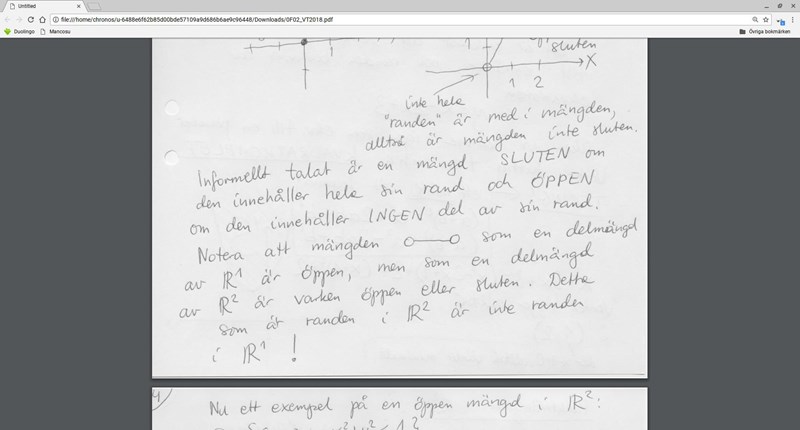 Untitled
file:///home/chronos/u-6488e6f62b85d00bde57109a9d686b6ae9c96448/Downloads/0F02_VT2018.pdf
Duolingo Mancosu Övriga bokmärken
1
1
sluten
X
1 2
inte hela
"randen" är med i mängden,
alltså är mängden inte sluten.
Informellt talat är en mängd SLUTEN om
den innehåller hela sin rand och ÖPPEN
om den innehåller INGEN del av sin rand.
Notera att mängden som en delmängd
av ℝ¹ är öppen, men som en delmängd
av ℝ² är varken öppen eller sluten. Detta
som är randen i ℝ² är inte randen
i ℝ¹ !
4)
Nu ett exempel på en öppen mängd i ℝ²: